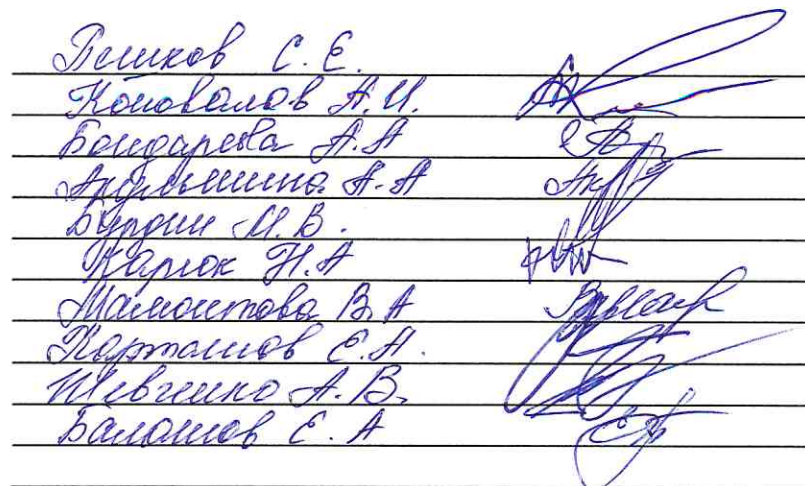 Коновалов А.И.
Бондарева А.А
А.А
Бурдин М.В.
Карюк Н.А
Мамонтова В.А
Карташов Е.А.
Шевченко А.В.
Балашов Е.А